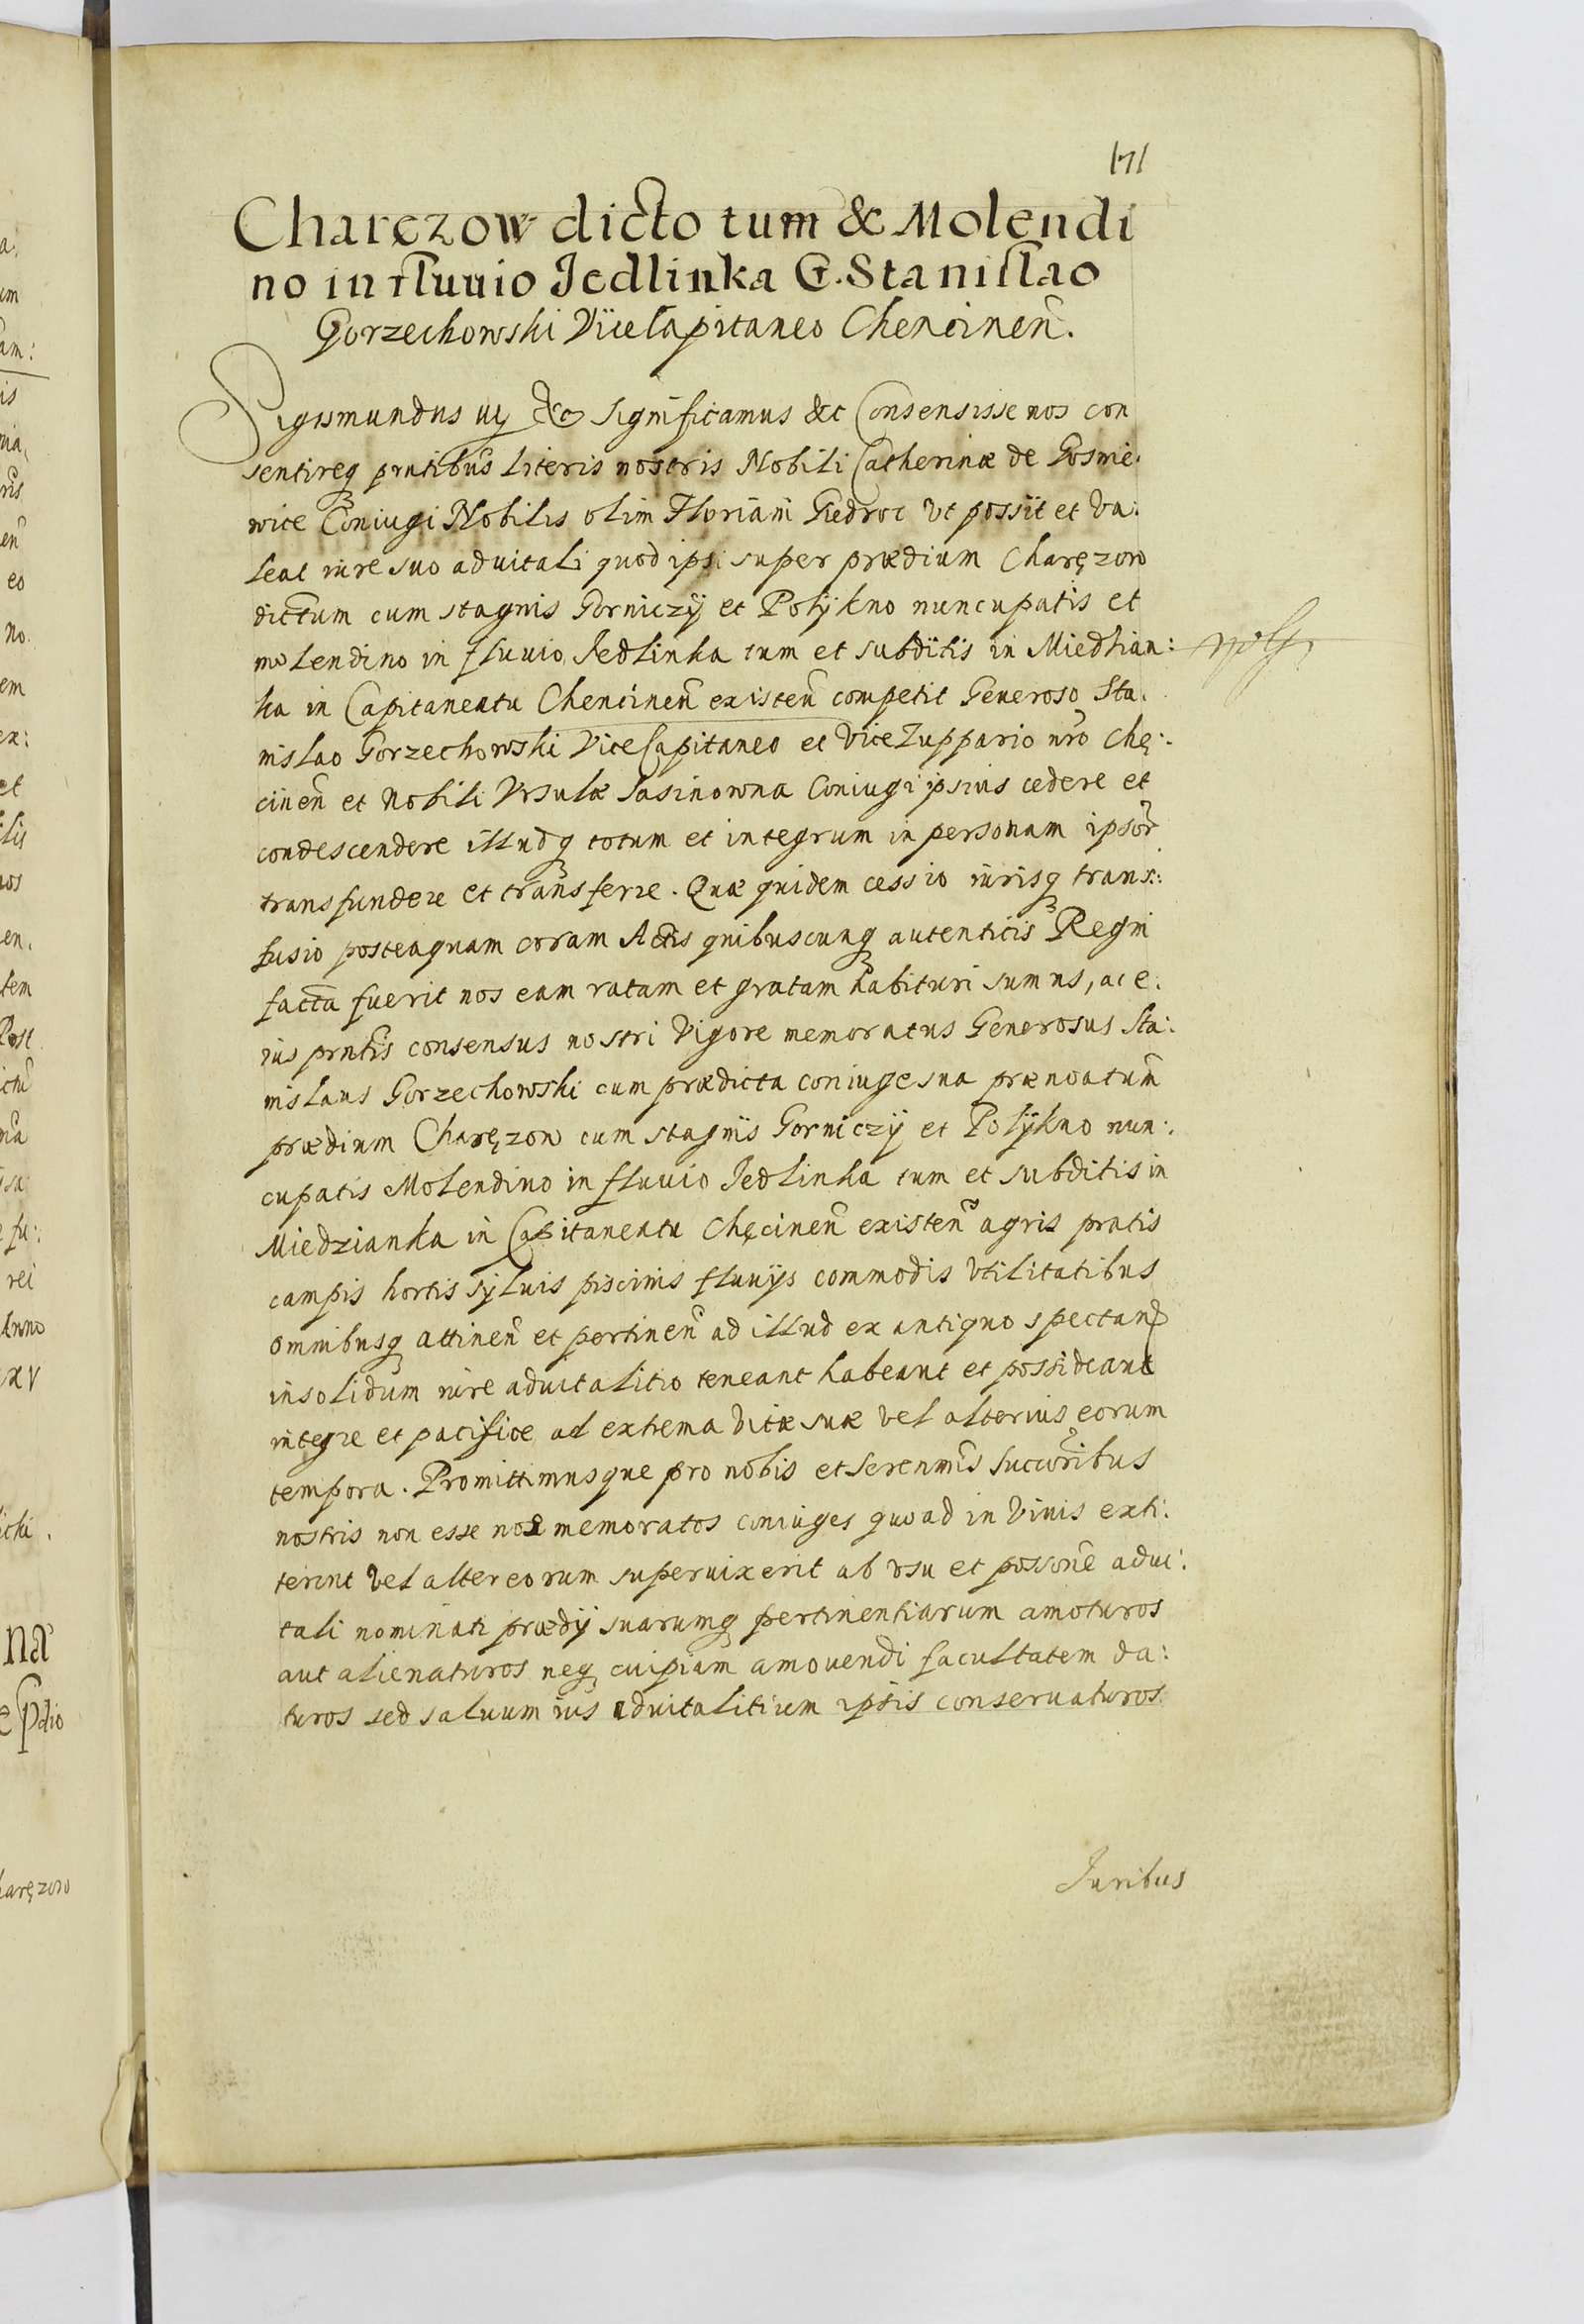 171
Charęzow dicto tum & Molendi
no in fluuio Jedlinka G. Stanislao
Gorzechowski ViceCapitaneo Chencinen̄.
Sigismundus iij &c significamus &c Consensisse nos con
sentireq prntibus literis nostris Nobili Catherinæ de Gosnie.
wice Coniugi Nobilis olim Floriani Giedroc vt possit et va:
leat iure suo aduitali quod ipsi super prædium Charęzow
dictum cum stagnis Gorniczÿ et Polÿkno nuncupatis et
molendino in fluuio Jedlinka tum et subditis in Miedzian:
ka in Capitaneatu Chencinen̄ existen̄ competit Generoso Sta.
nislao Gorzechowski ViceCapitaneo et ViceZuppario nr̄o Chę:
cinen̄ et Nobili Vrsulæ Sasinowna Coniugi ipsius cedere et
condescendere illudq totum et integrum in personam ipsor̄
transfundere et transferre. Quæ quidem cessio iurisq trans:
fusio posteaquam coram Actis quibuscunq autenticis Regni
facta fuerit nos eam ratam et gratam habituri sumus, ac e:
ius prntis consensus nostri vigore memoratus Generosus Sta:
nislaus Gorzechowski cum prædicta coniuge sua prænoatum̄
prædium Charęzow cum stagnis Gorniczÿ et Polÿkno nun:
cupatis Molendino in fluuio Jedlinka tum et subditis in
Miedzianka in Capitaneatu Chęcinen̄ existen̄ agris pratis
campis hortis syluis piscinis fluuijs commodis vtilitatibus
omnibusq attinen̄ et pertinen̄ ad illud ex antiquo spectand
insolidum iure aduitalitio teneant habeant et possideant
integre et pacifice ad extrema vitæ suæ vel alterius eorum
tempora. Promittimusque pro nobis et Serenm̄is Succor̄ibus
nostris non esse nos memoratos coniuges quoad in viuis exti:
terint vel alter eorum superuixerit ab vsu et posson̄e adui:
tali nominati prædij suarumq pertinentiarum amoturos
aut alienaturos neq cuipiam amouendi facultatem da:
turos sed saluum ius aduitalitium ipsis conseruaturos
Juribus